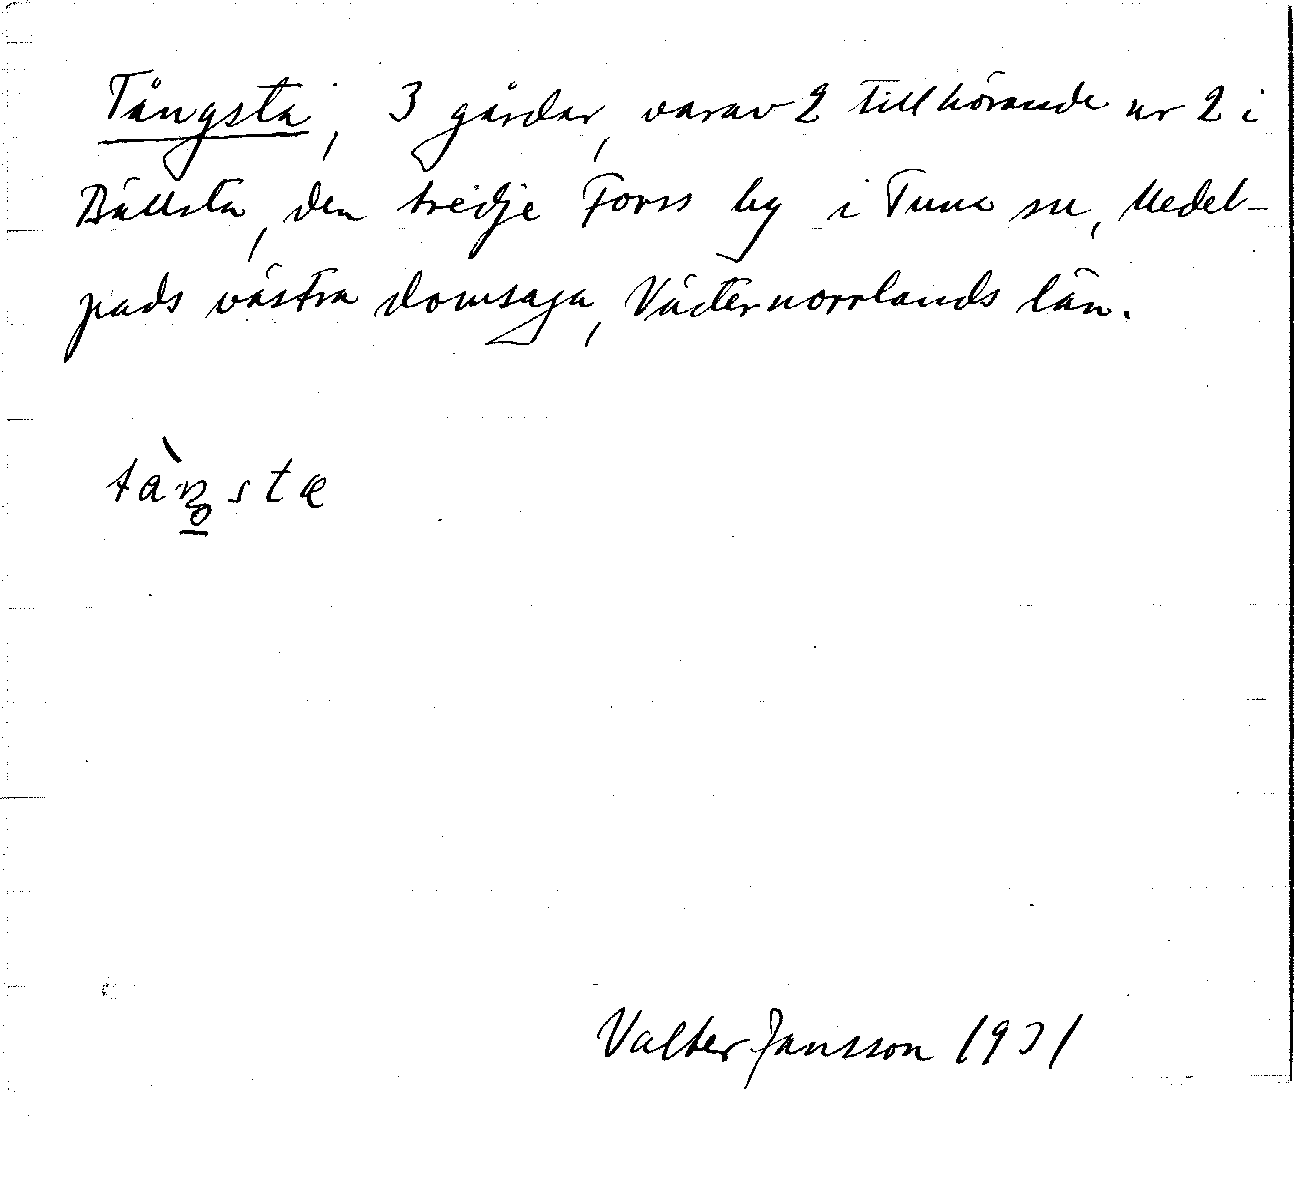 Tångsta, 3 gårdar, varav 2 tillhörande nr 2 i
Bällsta, den tredje Forss by i Tuna sn, Medel-
pads västra domsaga, Västernorrlands län.
tàŋ̥stæ
Valter Jansson 1931